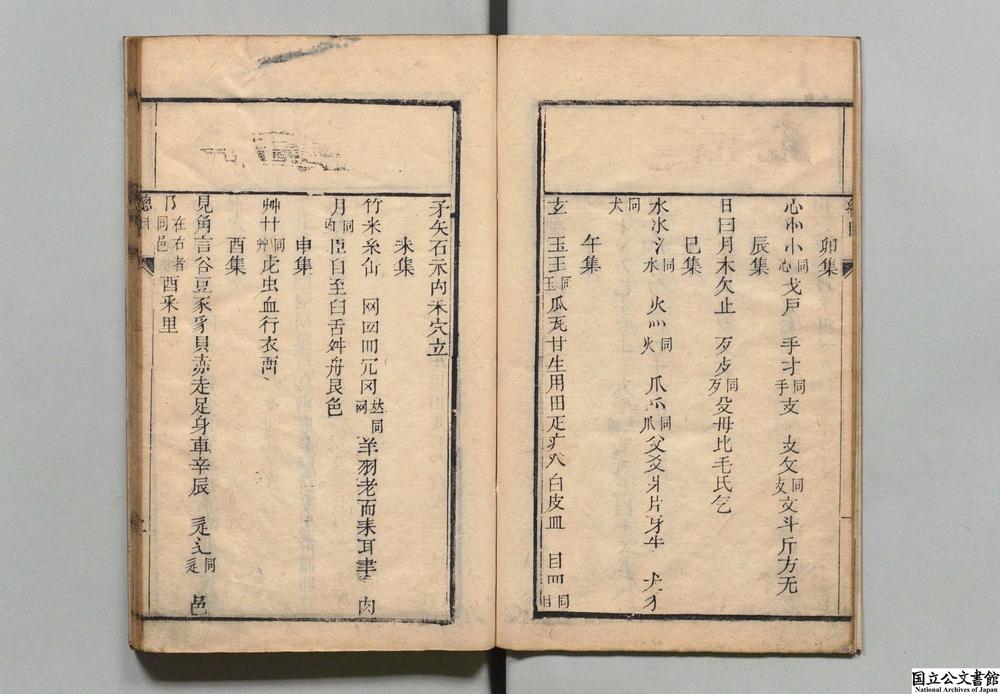 總目
卯集
心忄㣺同心戈戶 手扌同手支 攴攵同攴文斗斤方无
辰集
日曰月木欠止 歹歺同歹殳毋比毛氏气
巳集
水氵氺同水 火灬同火 爪爫同爪父爻爿片牙牛 犬犭
同犬
午集
玄 玉王同玉瓜瓦甘生用田疋疒癶白皮皿 目罒同目
矛矢石示禸禾穴立
未集
竹米糸缶 网同网羊羽老而耒耳聿 肉
月同肉臣自至臼舌舛舟艮色
申集
艸艹同艸虍虫血行衣襾
酉集
見角言谷豆豕豸貝赤走足身車辛辰 辵辶同辵 邑
阝在右者同邑酉釆里
總目
国立公文書館
National Archives of Japan